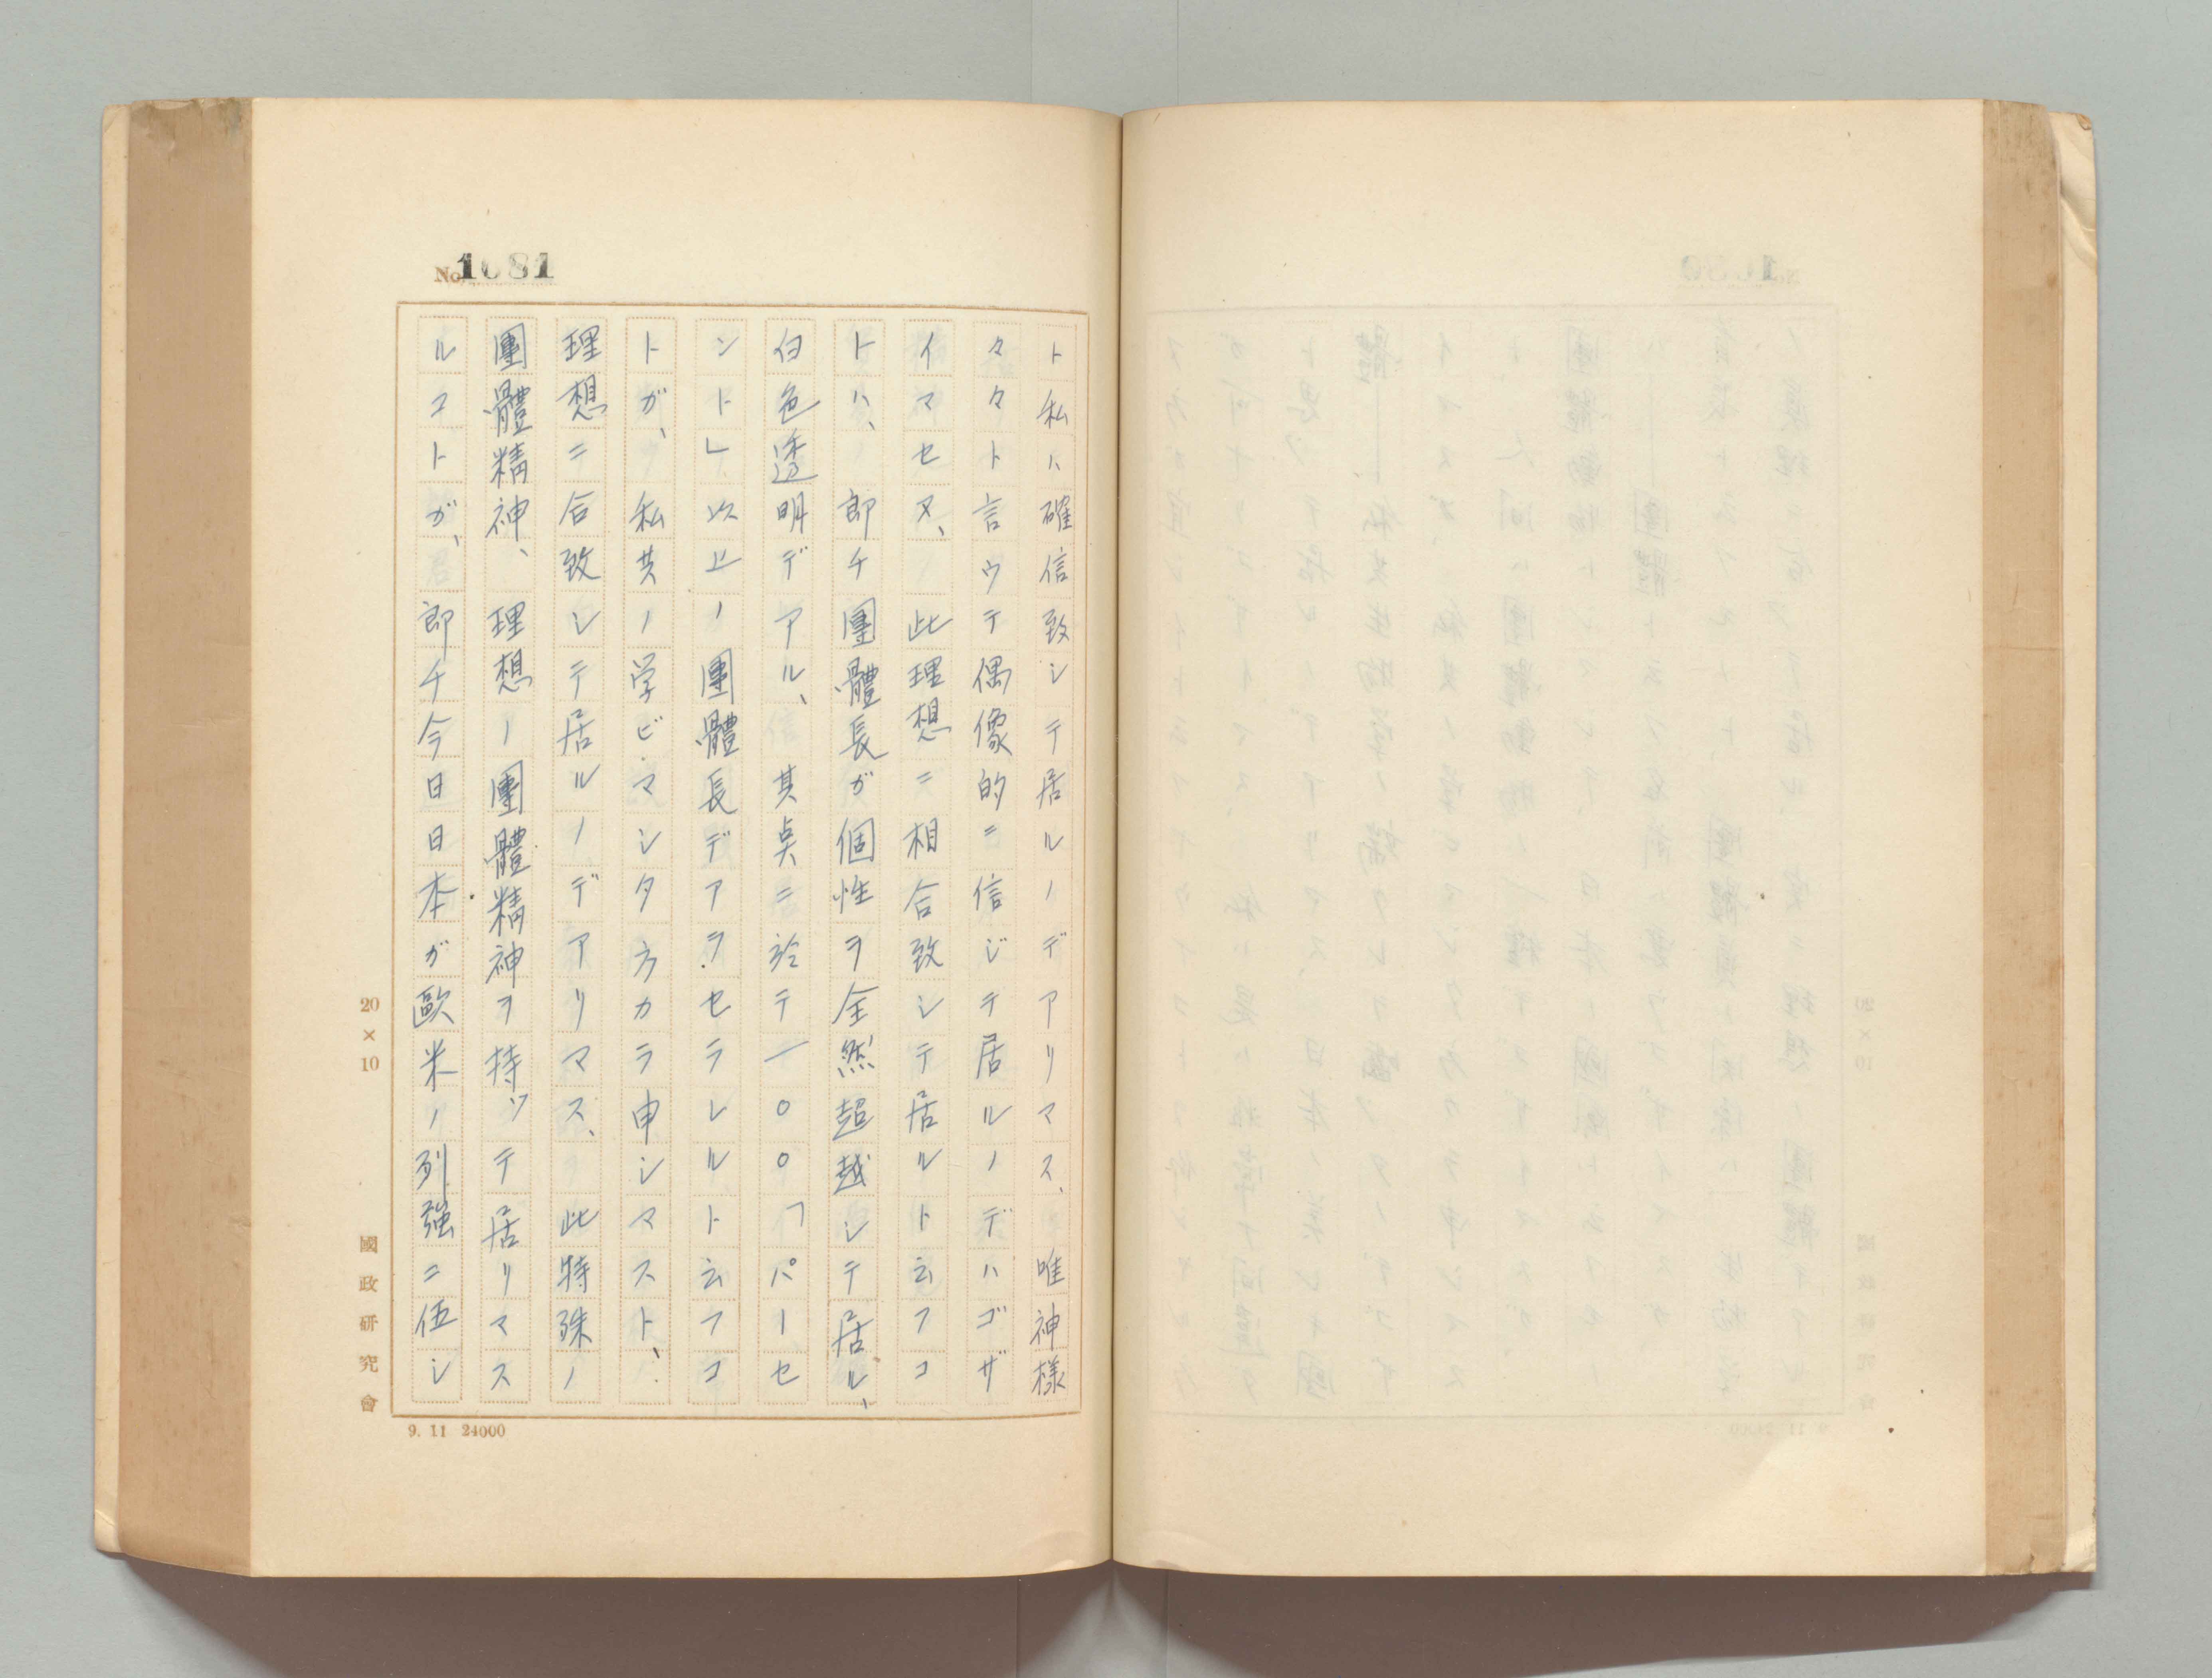 No. 1081
ト私ハ確信致シテ居ルノデアリマス、唯神様
々々ト言ウテ偶像的ニ信ジテ居ルノデハゴザ
イマセヌ、此理想ニ相合致シテ居ルト云フコ
トハ、即チ團體長ガ個性ヲ全然超越シテ居ル、
白色透明デアル、其奌ニ於テ一〇〇「パーセ
ント」以上ノ團體長デアラセラレルト云フコ
トガ、私共ノ学ビマシタ方カラ申シマスト、
理想ニ合致シテ居ルノデアリマス、此特殊ノ
團體精神、理想ノ團體精神ヲ持ツテ居リマス
ルコトガ、即チ今日日本ガ歐米ノ列強ニ伍シ
20×10
國政研究會
9. 11 24000